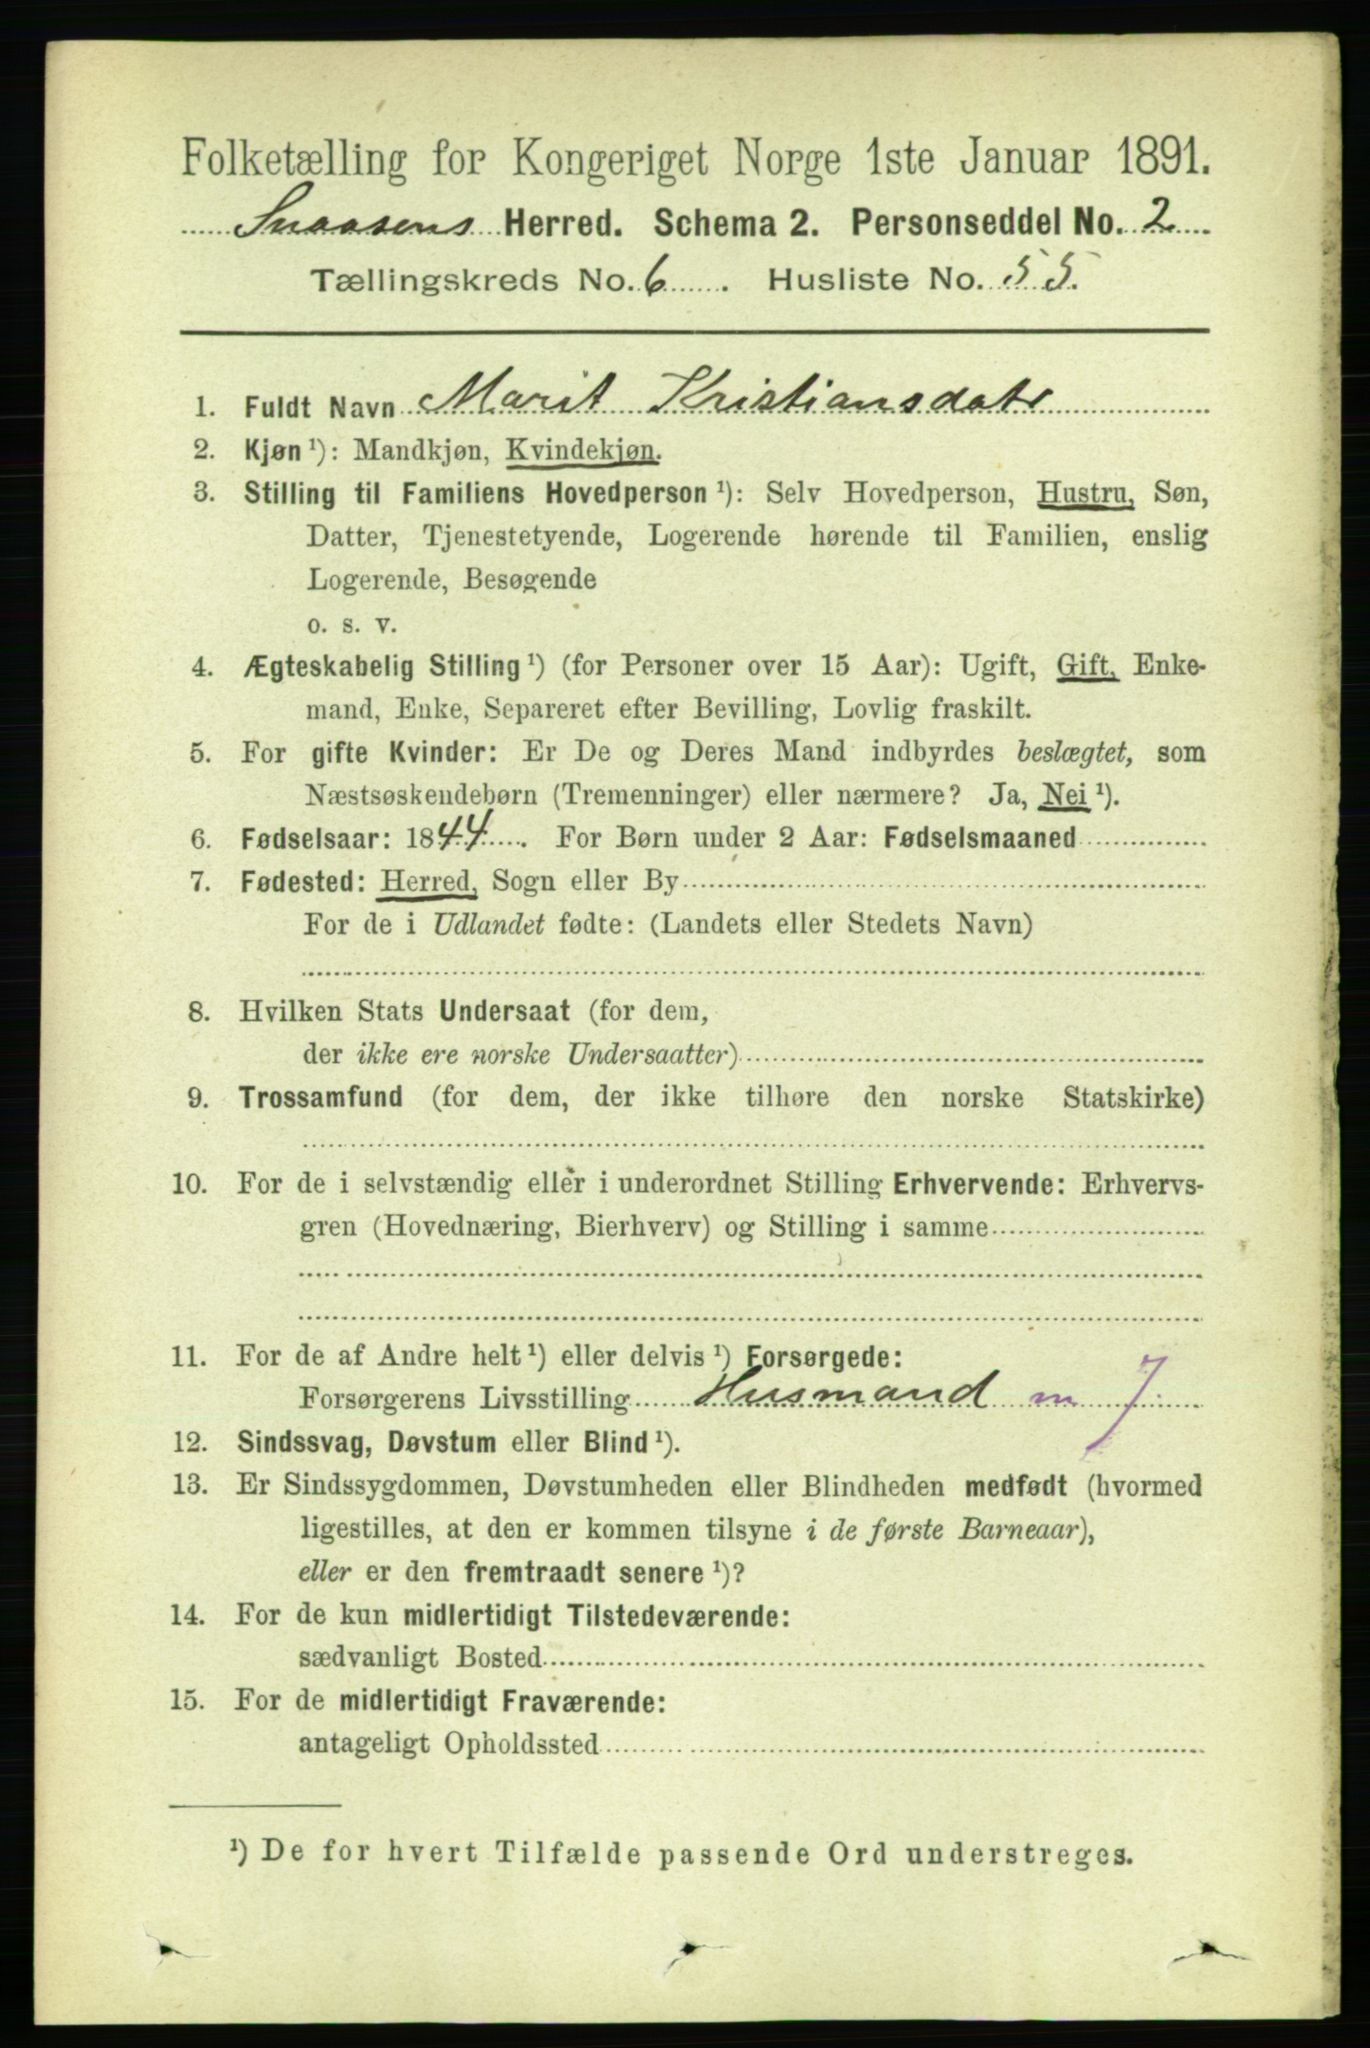 Folketælling for Kongeriget Norge 1ste Januar 1891.
Snaasens Herred. Schema 2. Personseddel No. 2
Tællingskreds No. 6. Husliste No. 55.
1. Fuldt Navn Marit Kristiansdatr
2. Kjøn ¹): Mandkjøn, Kvindekjøn.
3. Stilling til Familiens Hovedperson ¹): Selv Hovedperson, Hustru, Søn,
Datter, Tjenestetyende, Logerende hørende til Familien, enslig
Logerende, Besøgende
o. s. v.
4. Ægteskabelig Stilling ¹) (for Personer over 15 Aar): Ugift, Gift, Enke-
mand, Enke, Separeret efter Bevilling, Lovlig fraskilt.
5. For gifte Kvinder: Er De og Deres Mand indbyrdes beslægtet, som
Næstsøskendebørn (Tremenninger) eller nærmere? Ja, Nei ¹).
6. Fødselsaar: 1844. For Børn under 2 Aar: Fødselsmaaned
7. Fødested: Herred, Sogn eller By
For de i Udlandet fødte: (Landets eller Stedets Navn)
8. Hvilken Stats Undersaat (for dem,
der ikke ere norske Undersaatter)
9. Trossamfund (for dem, der ikke tilhøre den norske Statskirke)
10. For de i selvstændig eller i underordnet Stilling Erhvervende: Erhvervs-
gren (Hovednæring, Bierhverv) og Stilling i samme
11. For de af Andre helt ¹) eller delvis ¹) Forsørgede:
Forsørgerens Livsstilling Husmand m J.
12. Sindssvag, Døvstum eller Blind ¹).
13. Er Sindssygdommen, Døvstumheden eller Blindheden medfødt (hvormed
ligestilles, at den er kommen tilsyne i de første Barneaar),
eller er den fremtraadt senere ¹)?
14. For de kun midlertidigt Tilstedeværende:
sædvanligt Bosted
15. For de midlertidigt Fraværende:
antageligt Opholdssted
¹) De for hvert Tilfælde passende Ord understreges.